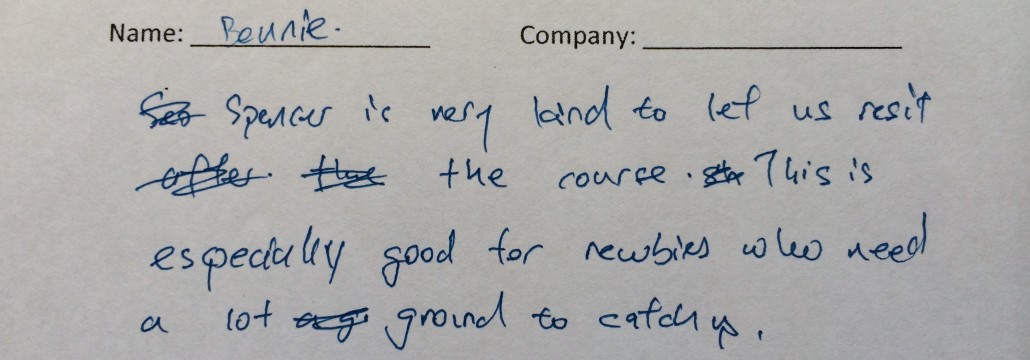 Name: Bennie. Company:
Spencer is very kind to let us resit
after. the course. This is
especially good for newbies who need
a lot ground to catch up.